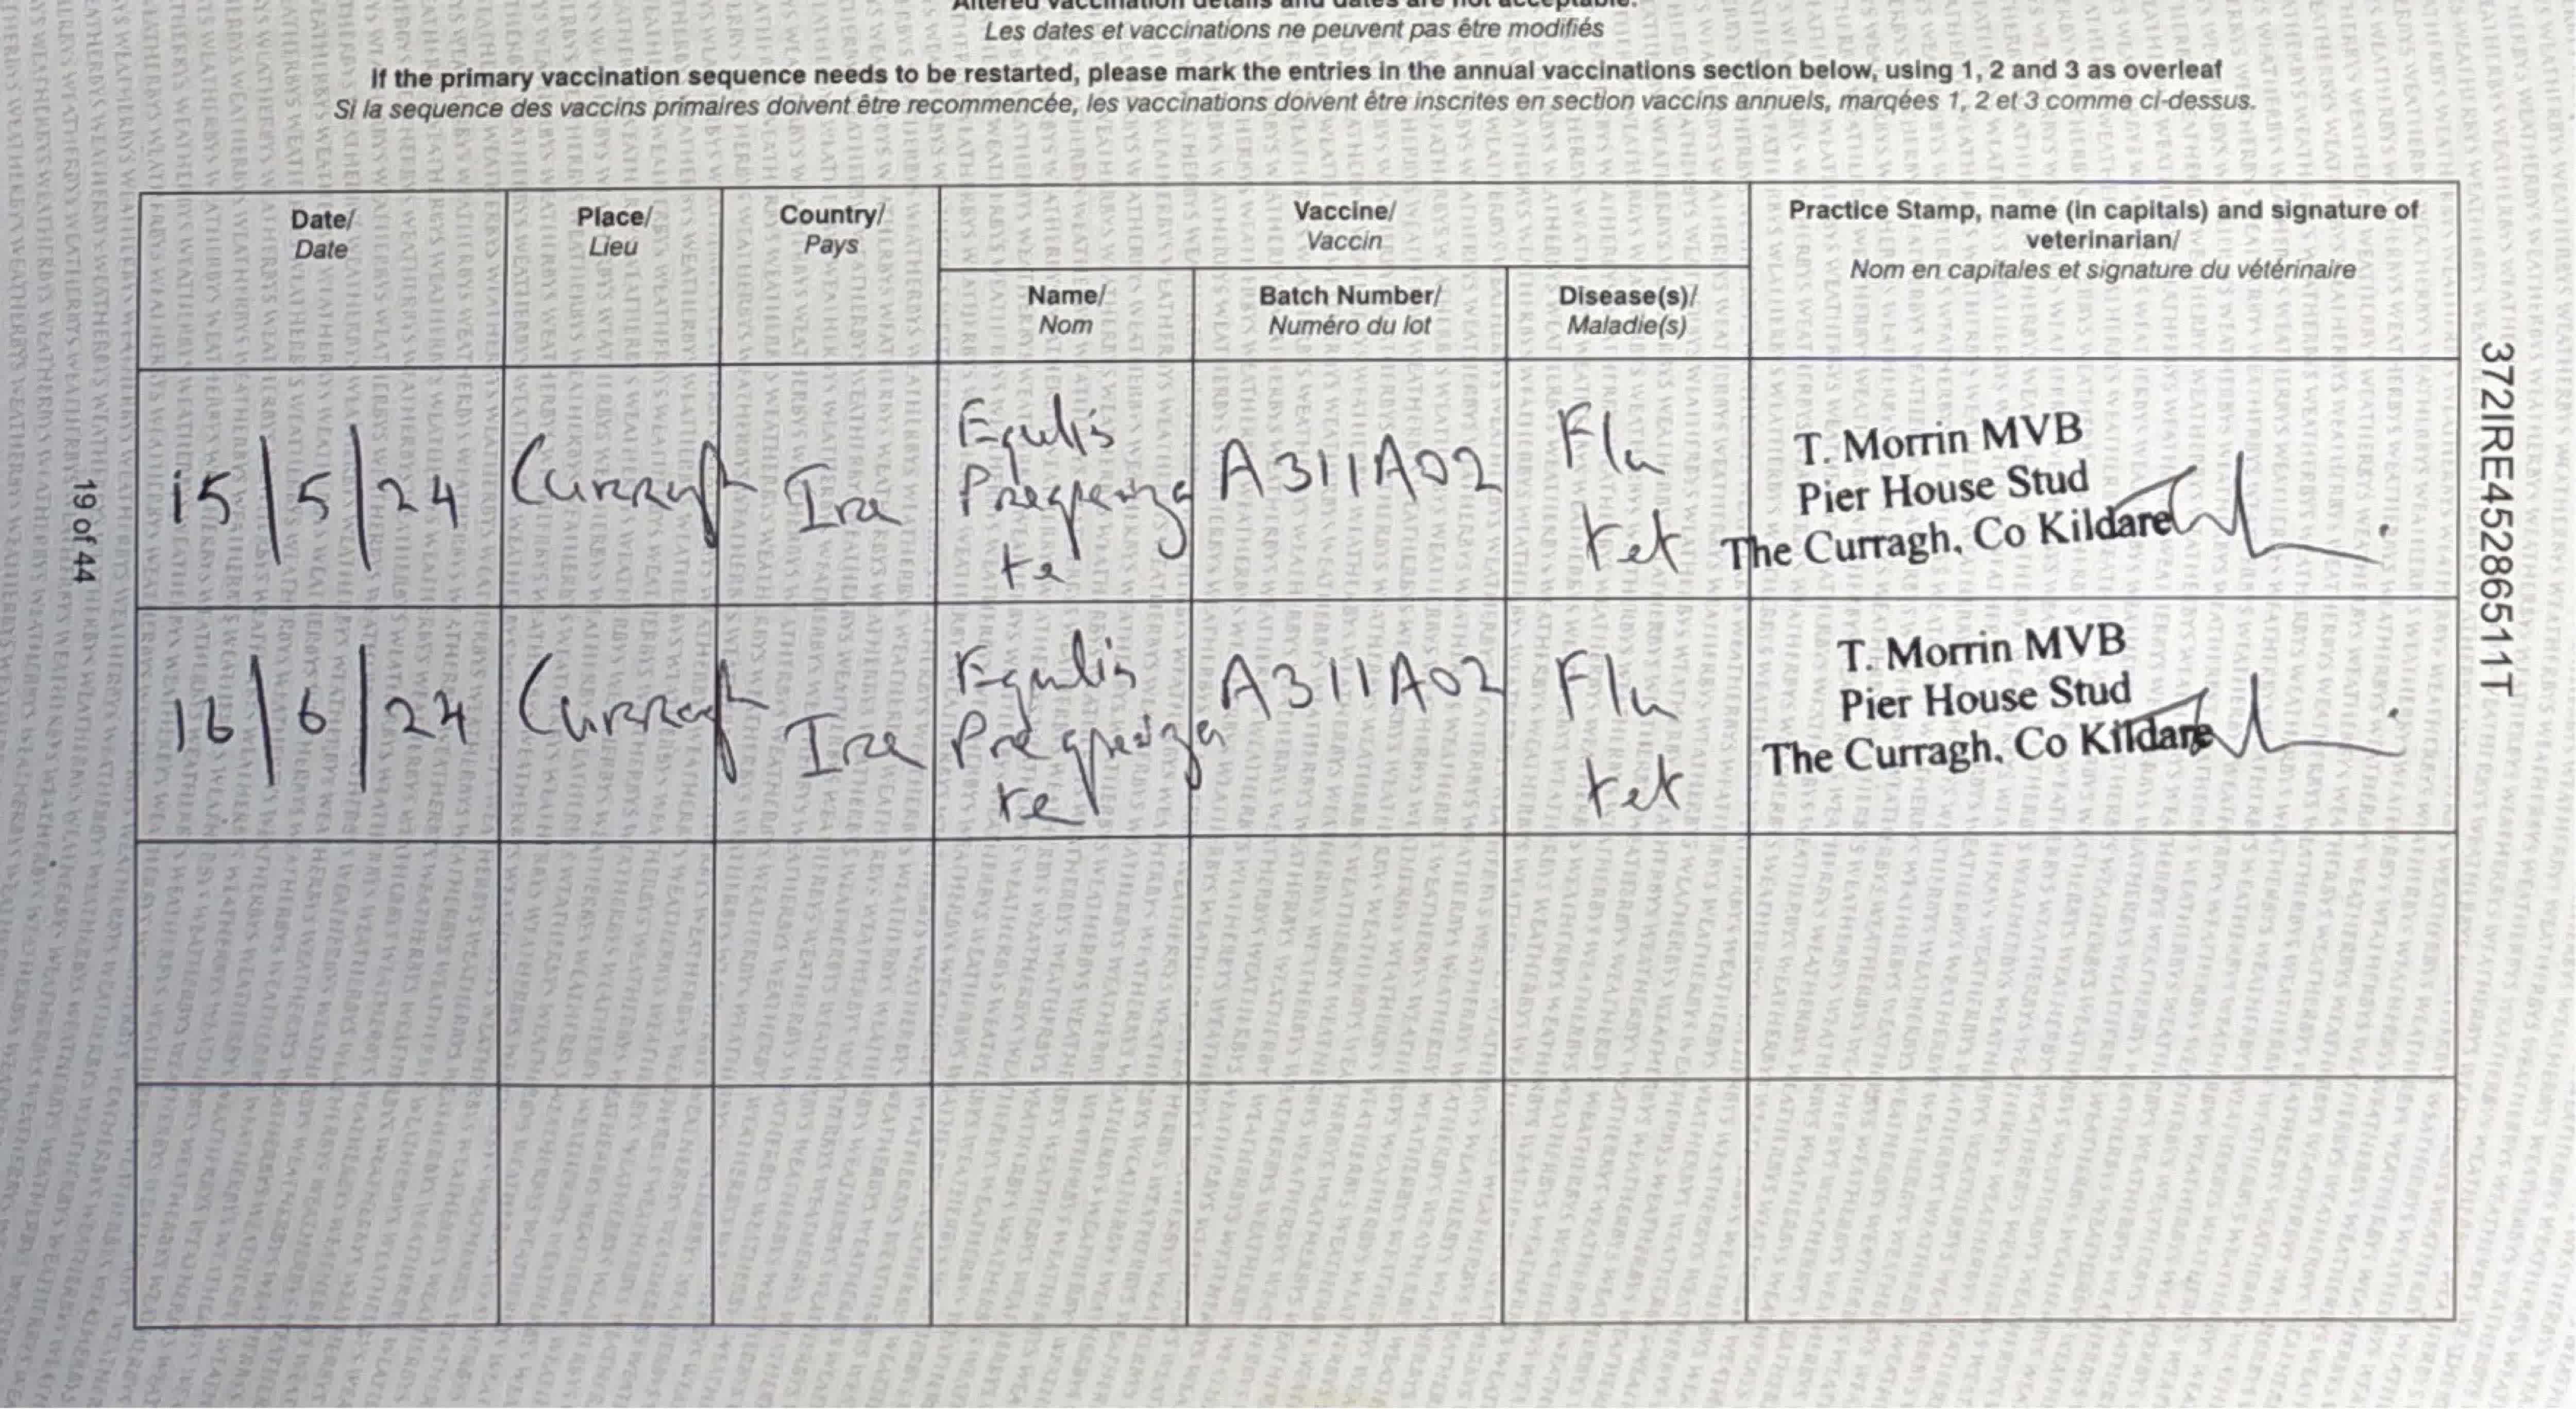 Altered vaccination details and dates are not acceptable.
Les dates et vaccinations ne peuvent pas être modifiés
If the primary vaccination sequence needs to be restarted, please mark the entries in the annual vaccinations section below, using 1, 2 and 3 as overleaf
Si la sequence des vaccins primaires doivent être recommencée, les vaccinations doivent être inscrites en section vaccins annuels, marqées 1, 2 et 3 comme ci-dessus.
Date/
Date
Place/
Lieu
Country/
Pays
Vaccine/
Vaccin
Name/
Nom
Batch Number/
Numéro du lot
Disease(s)/
Maladie(s)
Practice Stamp, name (in capitals) and signature of
veterinarian/
Nom en capitales et signature du vétérinaire
15/5/24
Curragh
Ire
Equilis
Prequenza
te
A311A02
Flu
tet
T. Morrin MVB
Pier House Stud
The Curragh, Co Kildare
16/6/24
Curragh
Ire
Equilis
Prequenza
te
A311A02
Flu
tet
T. Morrin MVB
Pier House Stud
The Curragh, Co Kildare
19 of 44
372IRE45286511T
WEATHERBYS